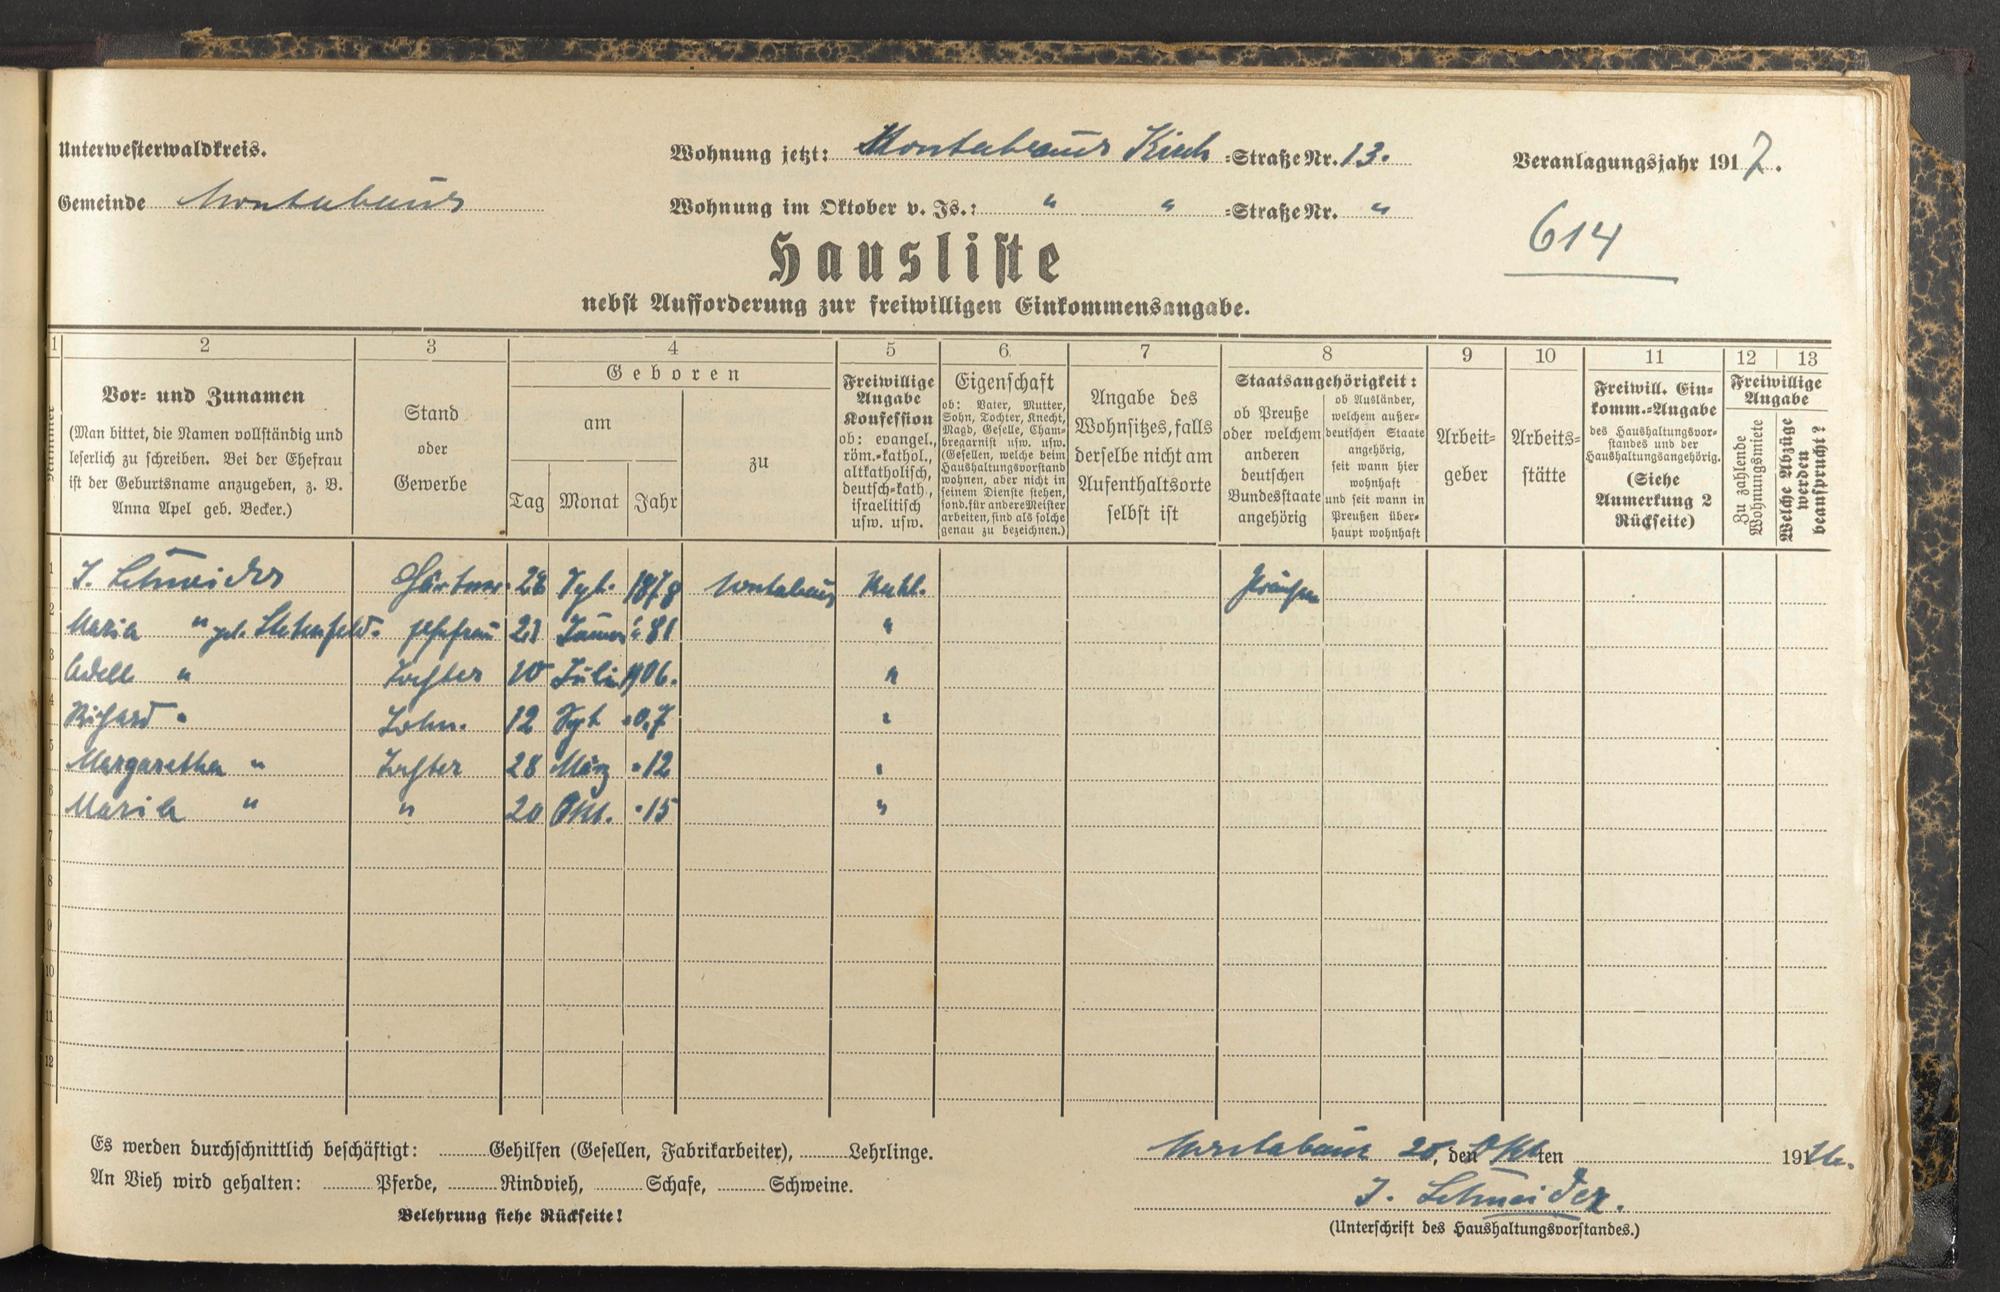 Unterwesterwaldkreis.
Wohnung jetzt: Montabaur Kirch =Straße Nr. 13.
Veranlagungsjahr 1917.
Gemeinde Montabaur
Wohnung im Oktober v. Js.: " " =Straße Nr. "
614
Hausliste
nebst Aufforderung zur freiwilligen Einkommensangabe.
1 2 3 4 5 6. 7 8 9 10 11 12 13
Nummer
Vor= und Zunamen
(Man bittet, die Namen vollständig und
leserlich zu schreiben. Bei der Ehefrau
ist der Geburtsname anzugeben, z. B.
Anna Apel geb. Becker.)
Stand
oder
Gewerbe
Geboren
am
Tag Monat Jahr
zu
Freiwillige
Angabe
Konfession
ob: evangel.,
röm.=kathol.,
altkatholisch,
deutsch=kath.,
israelitisch
usw. usw.
Eigenschaft
ob: Vater, Mutter,
Sohn, Tochter, Knecht,
Magd, Geselle, Cham=
bregarnist usw. usw.
(Gesellen, welche beim
Haushaltungsvorstand
wohnen, aber nicht in
seinem Dienste stehen,
sond. für andere Meister
arbeiten, sind als solche
genau zu bezeichnen.)
Angabe des
Wohnsitzes, falls
derselbe nicht am
Aufenthaltsorte
selbst ist
Staatsangehörigkeit:
ob Preuße
oder welchem
anderen
deutschen
Bundesstaate
angehörig
ob Ausländer,
welchem außer=
deutschen Staate
angehörig,
seit wann hier
wohnhaft
und seit wann in
Preußen über=
haupt wohnhaft
Arbeit=
geber
Arbeits=
stätte
Freiwill. Ein=
komm.=Angabe
des Haushaltungsvor=
standes und der
Haushaltungsangehörig.
(Siehe
Anmerkung 2
Rückseite)
Freiwillige
Angabe
Zu zahlende
Wohnungsmiete
Welche Abzüge
werden
beansprucht?
1 J. Schneider Gärtner 28 Sept. 1878 Montabaur Kathl. Preußen
2 Maria " geb. Ehefrau 21 Januar " 81 "
3 Adele " Tochter 10 Juli 1906. "
4 Richard " Sohn. 12 Sept " 07 "
5 Margaretha " Tochter 28 März " 12 "
6 Maria " " 20 Okt. " 15 "
7
8
9
10
11
12
Es werden durchschnittlich beschäftigt: Gehilfen (Gesellen, Fabrikarbeiter), Lehrlinge.
An Vieh wird gehalten: Pferde, Rindvieh, Schafe, Schweine.
Belehrung siehe Rückseite!
Montabaur 20, den Okt ten 1916.
J. Schneider.
(Unterschrift des Haushaltungsvorstandes.)